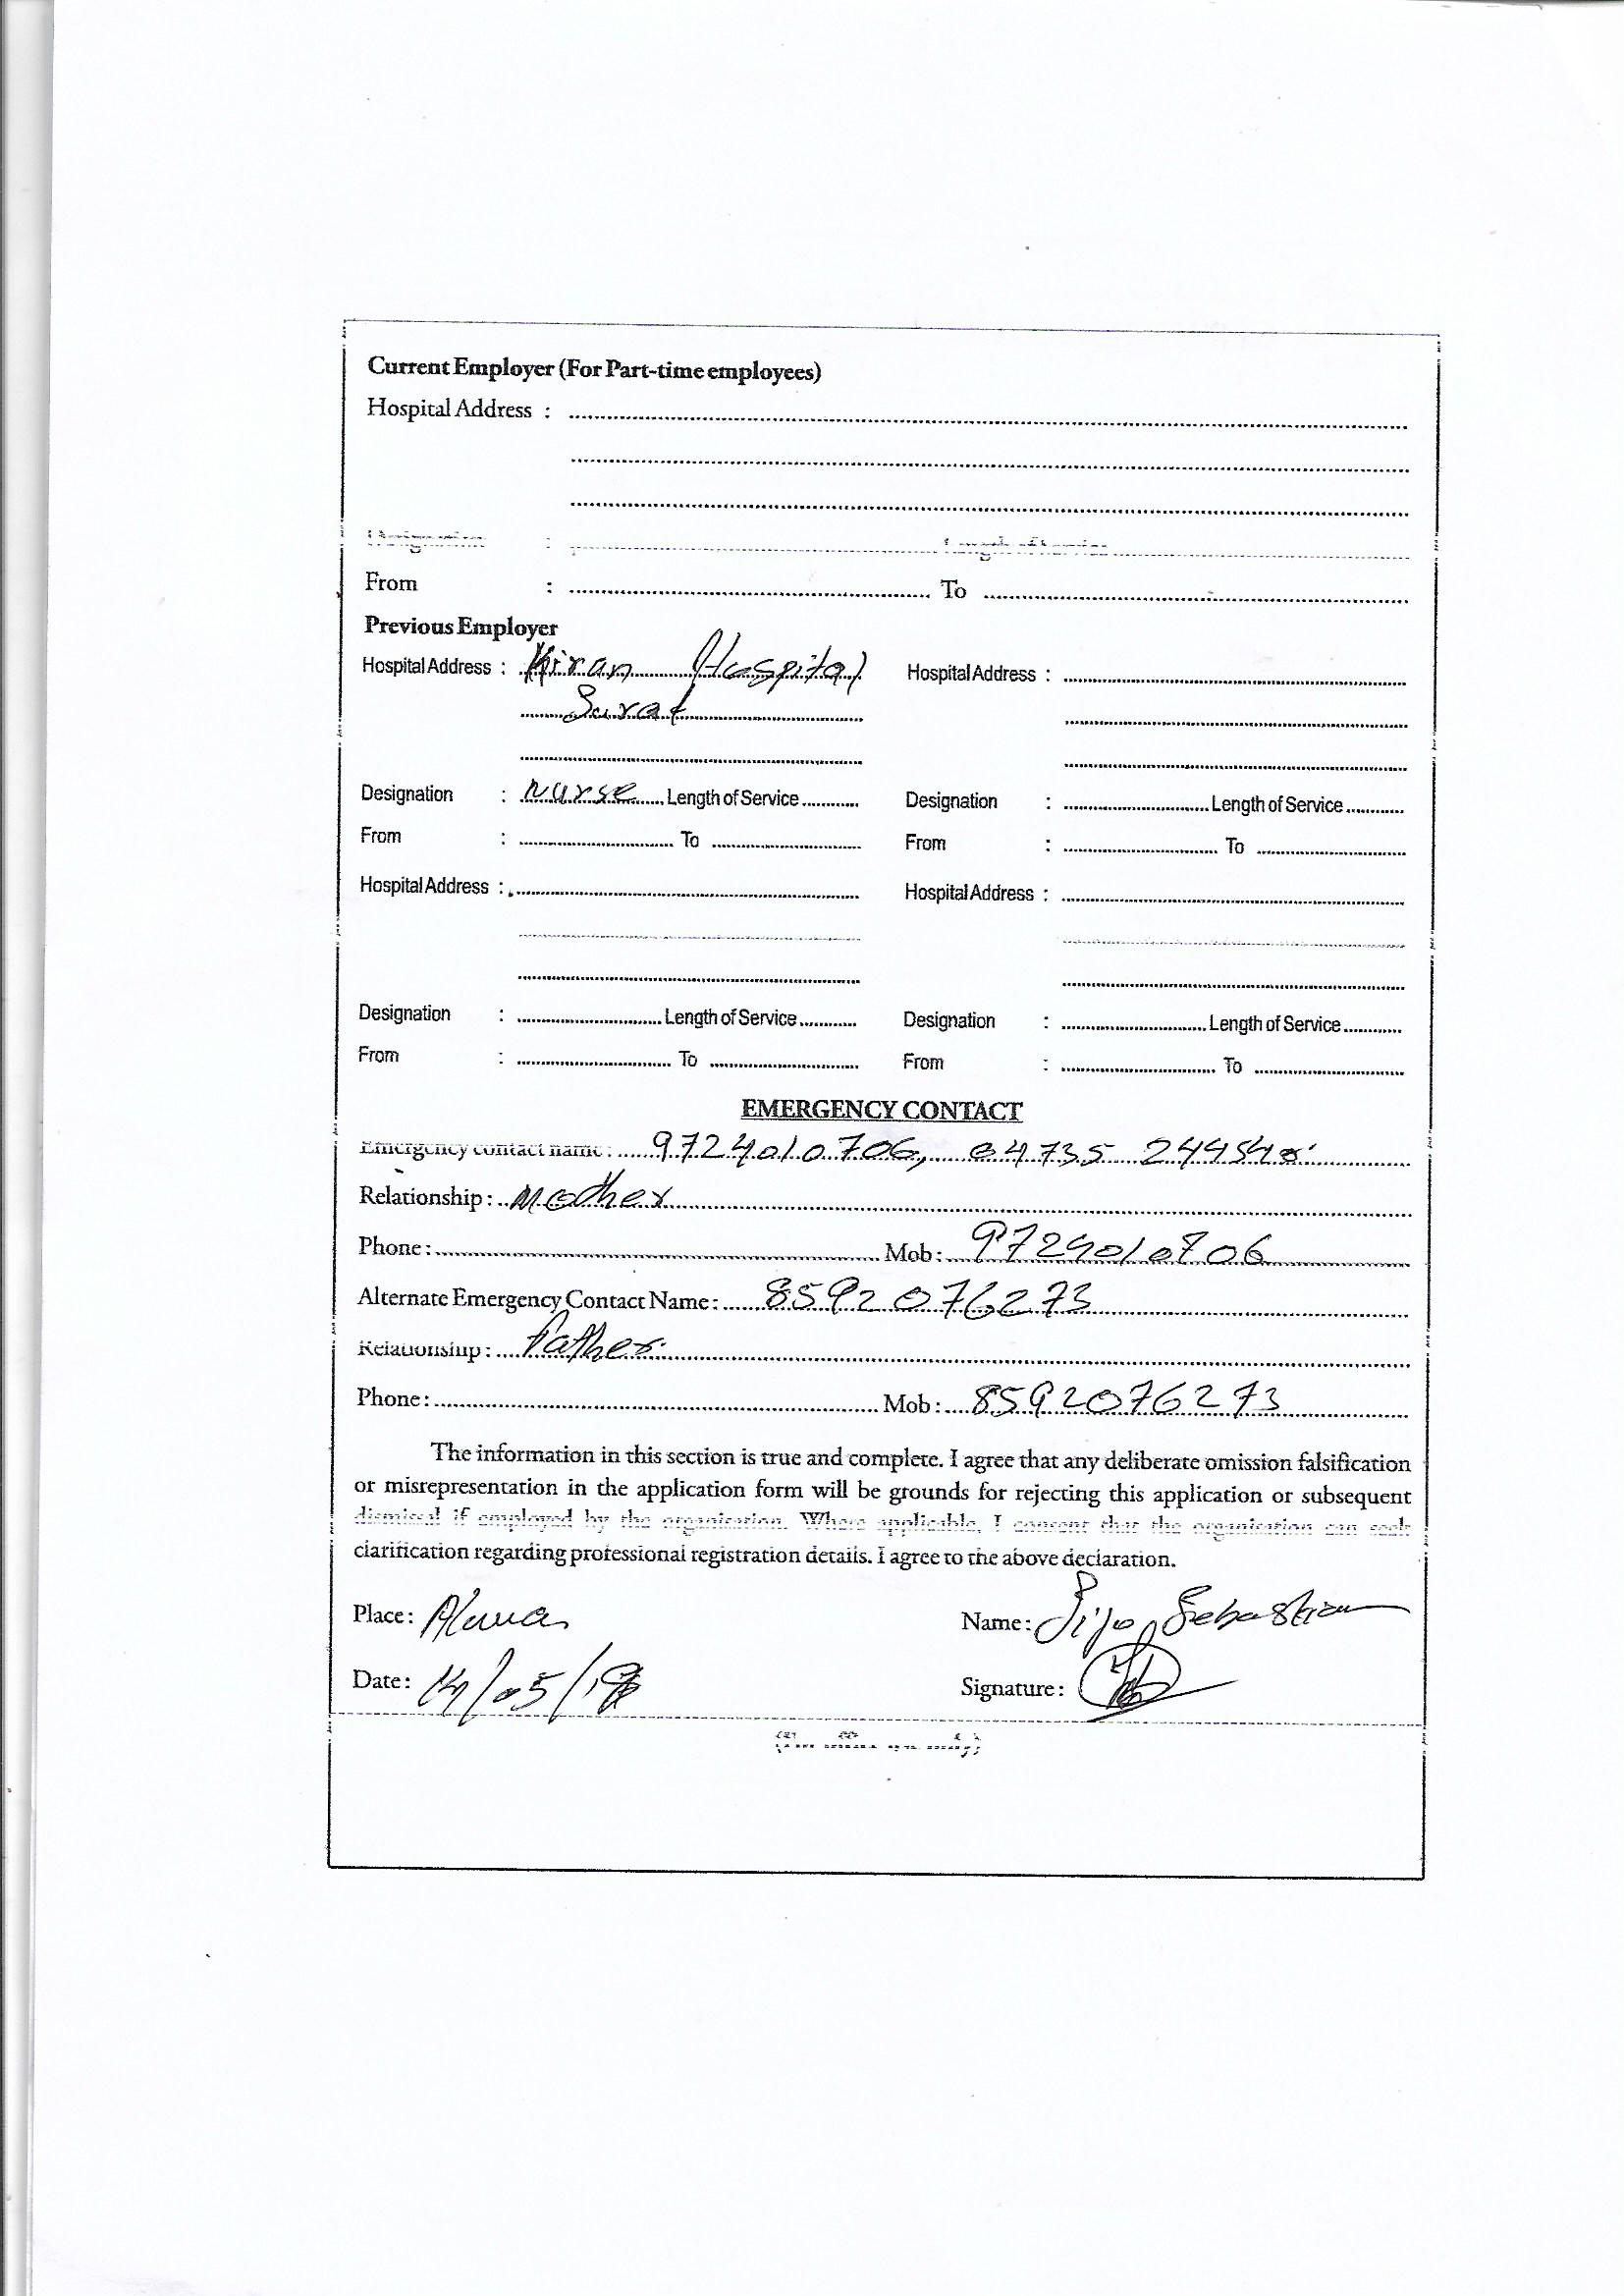 Current Employer (For Part-time employees)
Hospital Address :
Designation : Length of Service
From : To
Previous Employer
Hospital Address : Kiran Hospital Hospital Address :
Surat
Designation : Nurse Length of Service Designation : Length of Service
From : To From : To
Hospital Address : Hospital Address :
Designation : Length of Service Designation : Length of Service
From : To From : To
EMERGENCY CONTACT
Emergency contact name : 9724010706, 04735
Relationship : Mother
Phone : Mob : 9724010706
Alternate Emergency Contact Name : 8592076273
Relationship : Father
Phone : Mob : 8592076273
The information in this section is true and complete. I agree that any deliberate omission falsification
or misrepresentation in the application form will be grounds for rejecting this application or subsequent
dismissal if employed by the organisation. Where applicable, I consent that the organisation can seek
clarification regarding professional registration details. I agree to the above declaration.
Place : Aluva Name : Jijo Sebastian
Date : 14/05/ Signature :
(For office use only)